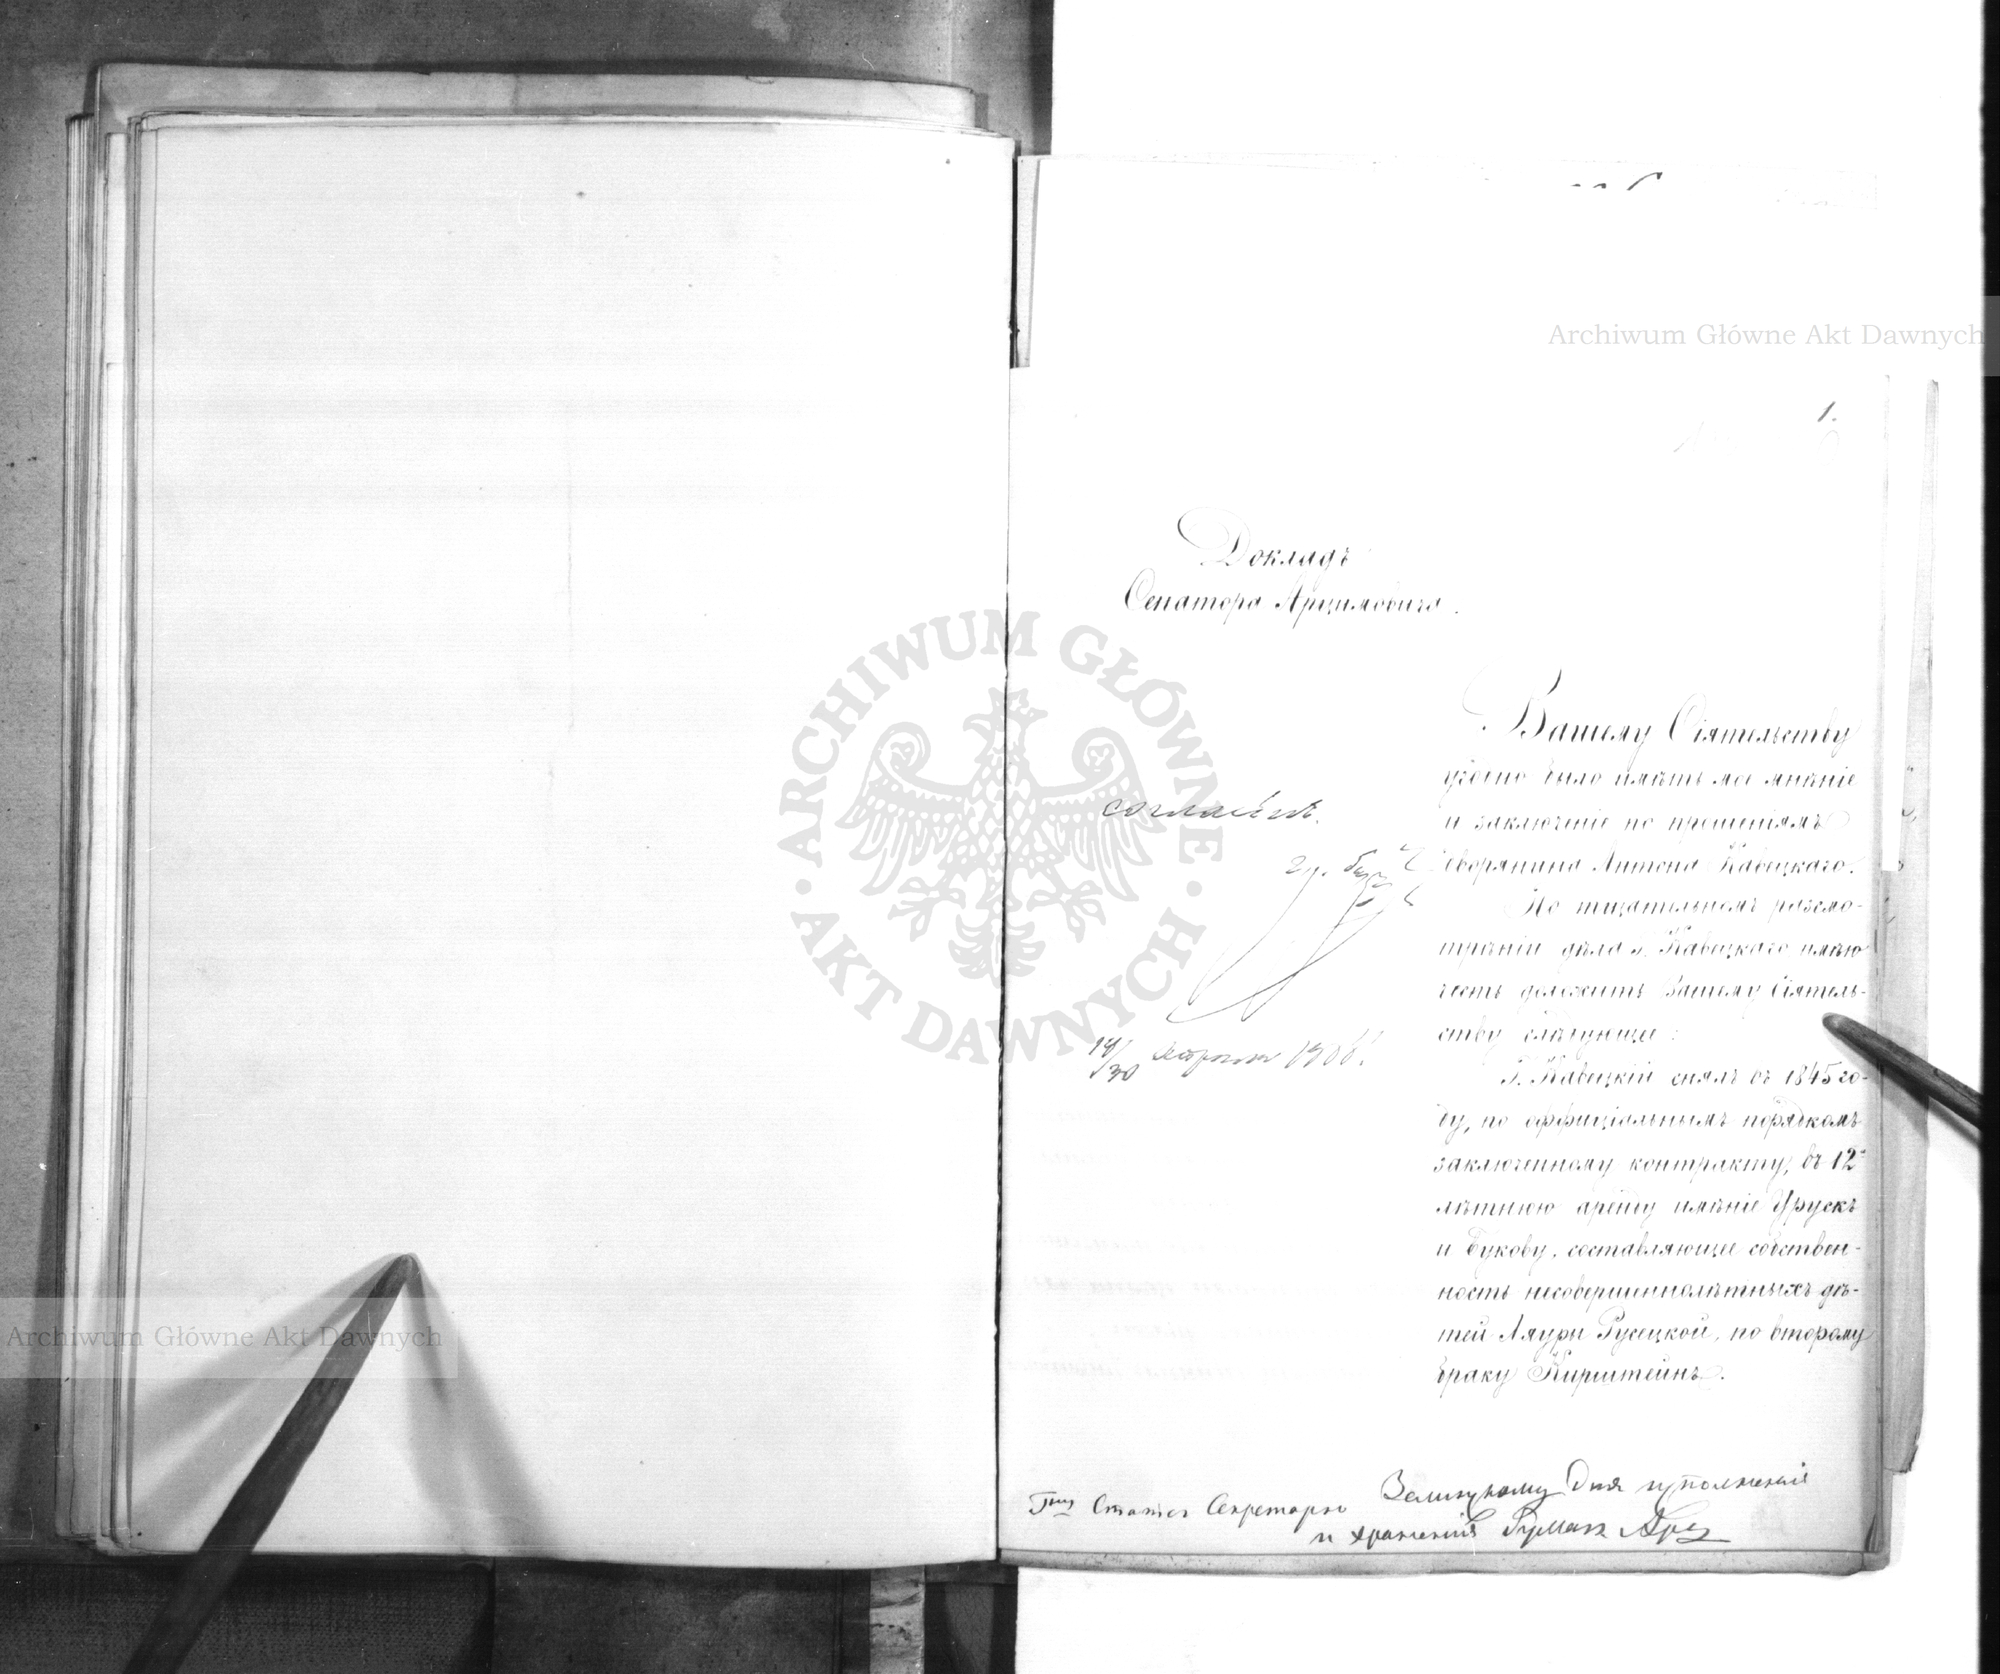 1.
Докладъ
Сенатора Арцимовича.
Вашему Сіятельству
угодно было имѣть мое мнѣніе
и заключеніе по прошеніямъ
дворянина Антона Кавецкаго.
По тщательномъ разсмо-
трѣніи дѣла Г. Кавецкаго имѣю
честь доложить Вашему Сіятель-
ству слѣдующее:
Г. Кавецкій снялъ съ 1845 го-
ду, по оффиціальнымъ порядкомъ
заключенному контракту, въ 12-
лѣтнюю аренду имѣніе Урускъ
и Букову, составляющее собствен-
ность несовершеннолѣтныхъ дѣ-
тей Лауры Русецкой, по второму
браку Кирштейнъ.
согласенъ.
гр. Бергъ
18/30 Апрѣля
Статсъ Секретарю Зелинскому Для исполненія
и храненія бумагъ Арц
Archiwum Główne Akt Dawnych
Archiwum Główne Akt Dawnych
ARCHIWUM GŁÓWNE AKT DAWNYCH